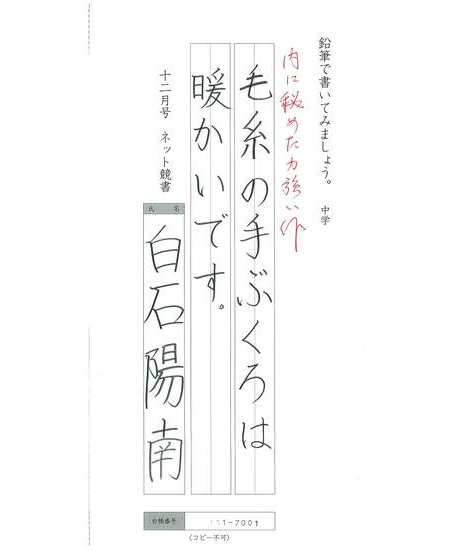 鉛筆で書いてみましょう。 中学
内に秘めた力強い作
毛糸の手ぶくろは
暖かいです。
十二月号 ネット競書
氏 名
白石陽南
台帳番号
111-7001
(コピー不可)